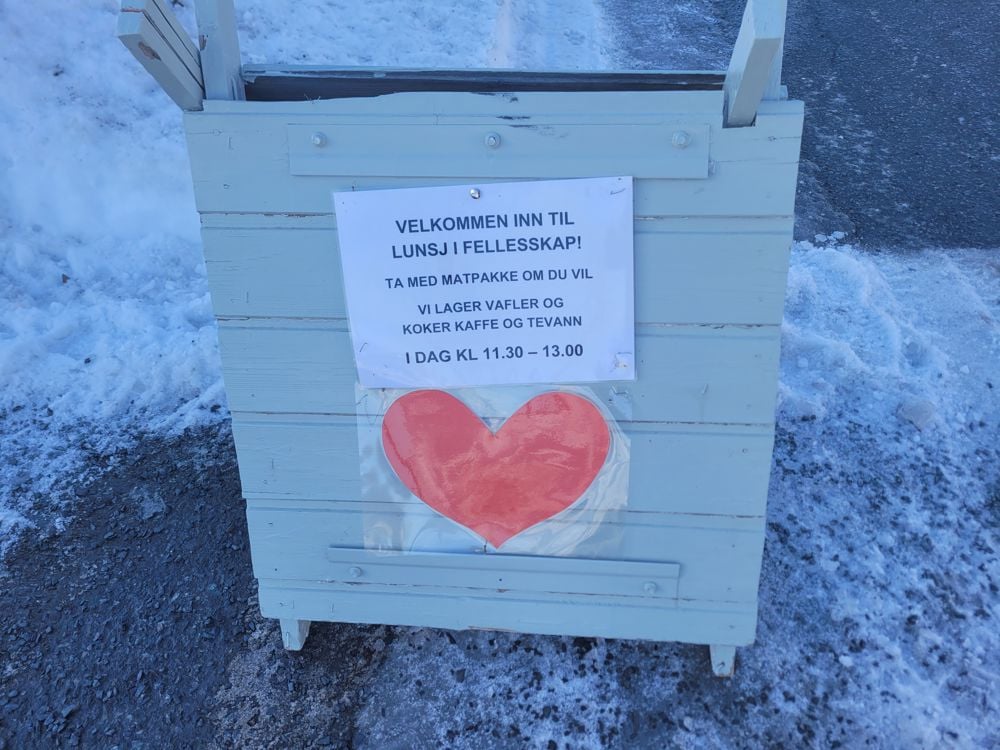 VELKOMMEN INN TIL
LUNSJ I FELLESSKAP!
TA MED MATPAKKE OM DU VIL
VI LAGER VAFLER OG
KOKER KAFFE OG TEVANN
I DAG KL 11.30 – 13.00